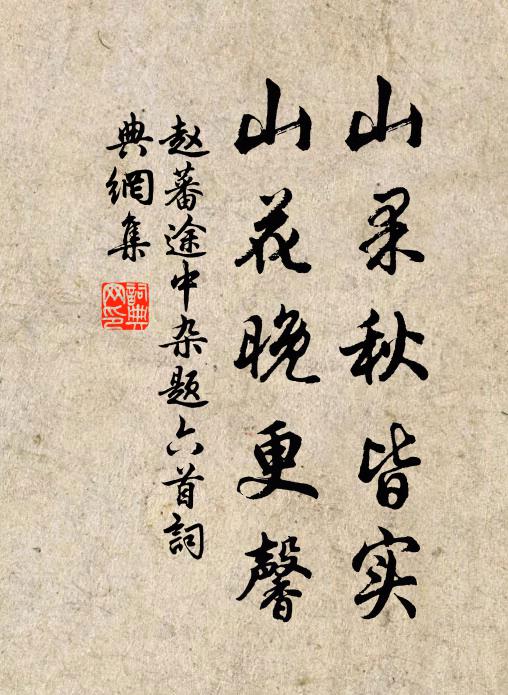 山果秋皆实
山花晚更馨
赵蕃途中杂题六首詞
典網集
詞典网印